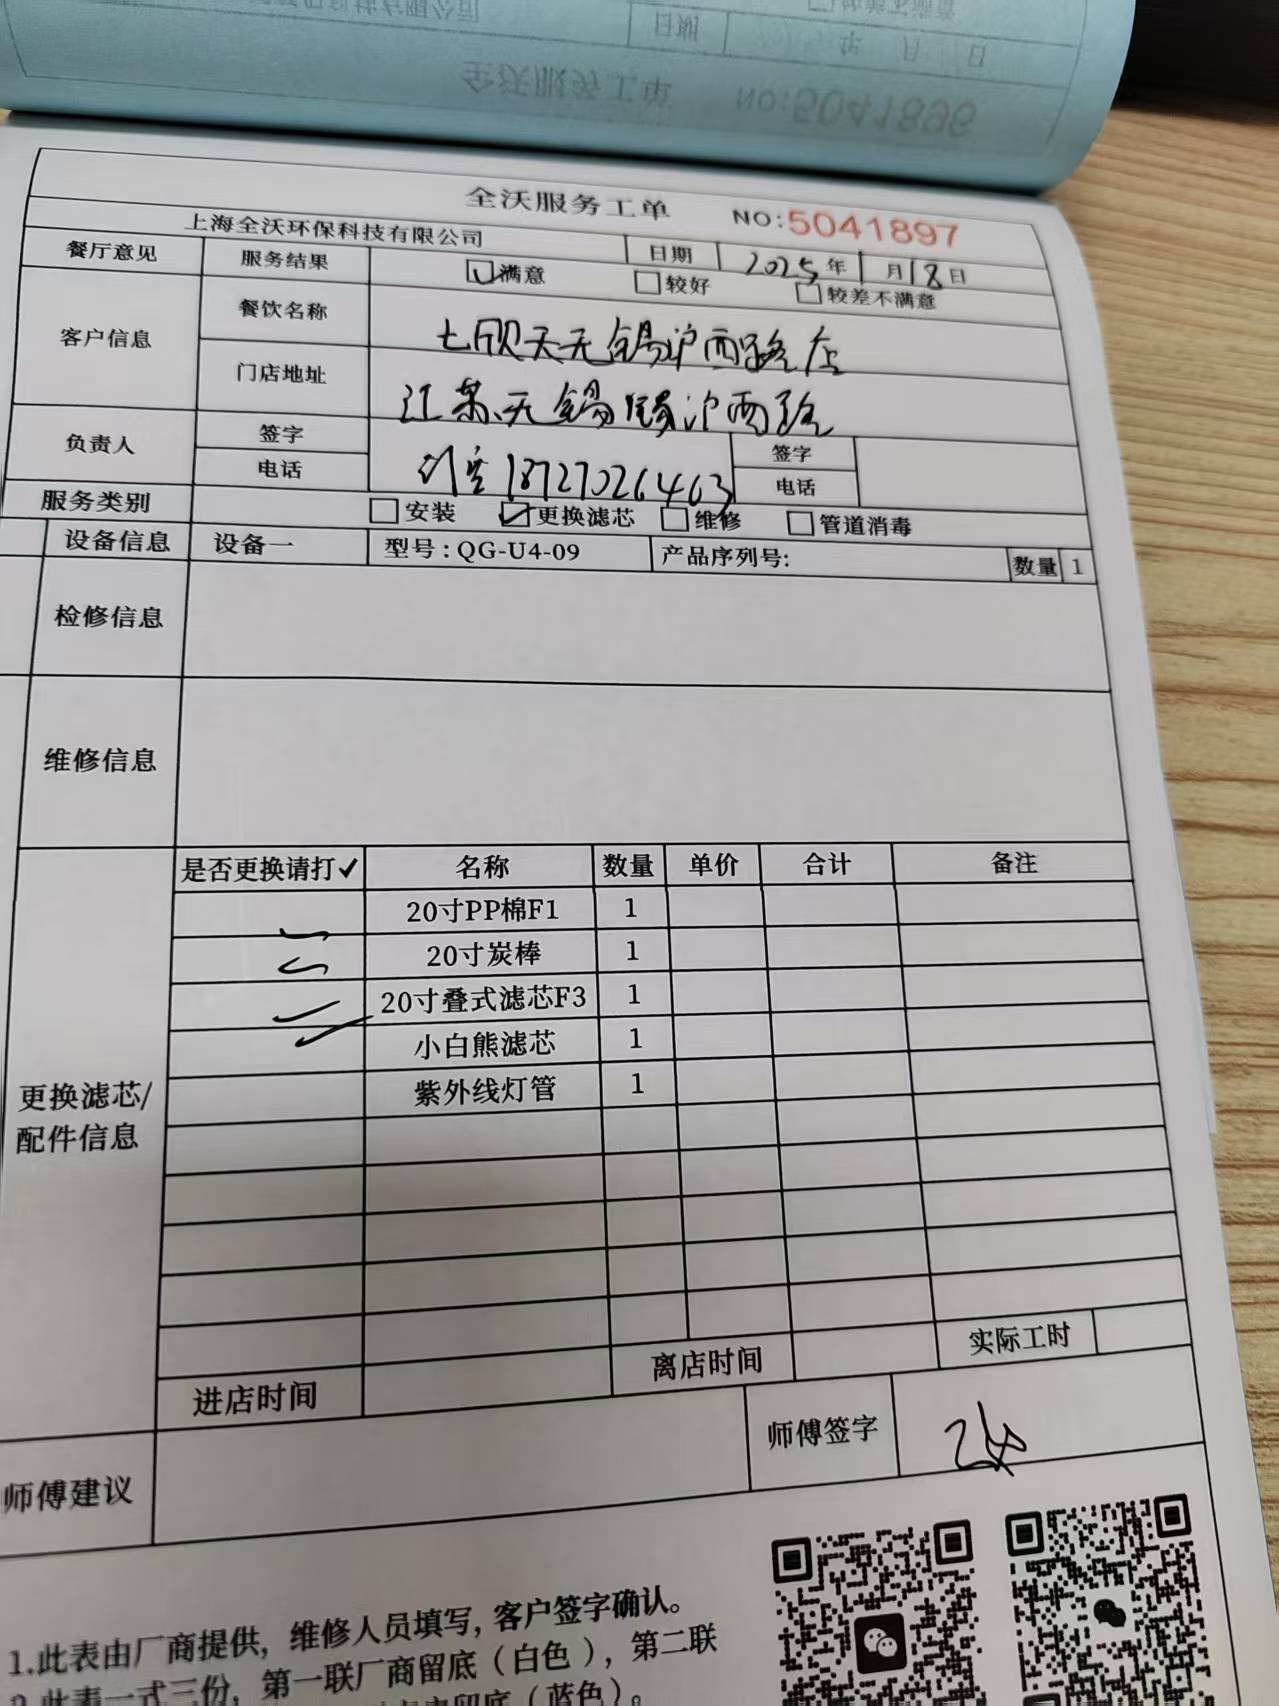 全沃服务工单 NO:5041896
全沃服务工单 NO:5041897
上海全沃环保科技有限公司 日期 2025年1月18日
餐厅意见 服务结果 满意 较好 较差不满意
客户信息 餐饮名称 七欣天无锡沪西路店
门店地址 江苏无锡锡沪西路
负责人 签字 签字
电话 18727026463 电话
服务类别 安装 更换滤芯 维修 管道消毒
设备信息 设备一 型号:QG-U4-09 产品序列号: 数量 1
检修信息
维修信息
是否更换请打✓ 名称 数量 单价 合计 备注
20寸PP棉F1 1
20寸炭棒 1
20寸叠式滤芯F3 1
小白熊滤芯 1
紫外线灯管 1
更换滤芯/
配件信息
进店时间 离店时间 实际工时
师傅建议 师傅签字
1.此表由厂商提供，维修人员填写，客户签字确认。
2.此表一式三份，第一联厂商留底（白色），第二联
留底（蓝色）。